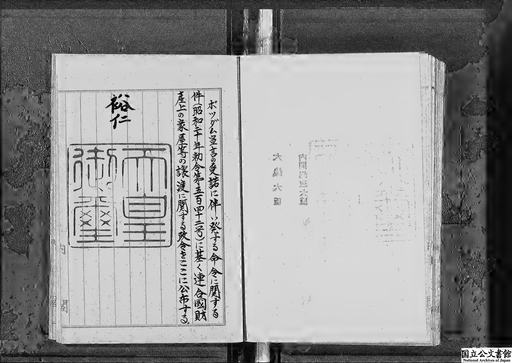 ポツダム宣言の受諾に伴い発する命令に関する
件(昭和二十年勅令第五百四十二号)に基く連合国財
産上の家屋等の譲渡に関する政令をここに公布する。
裕仁
天皇
御璽
大蔵大臣
国立公文書館
National Archives of Japan